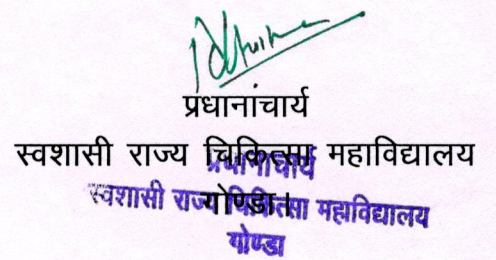 प्रधानांचार्य
स्वशासी राज्य चिकित्सा महाविद्यालय
गोण्डा।
प्रधानाचार्य
स्वशासी राज्य चिकित्सा महाविद्यालय
गोण्डा